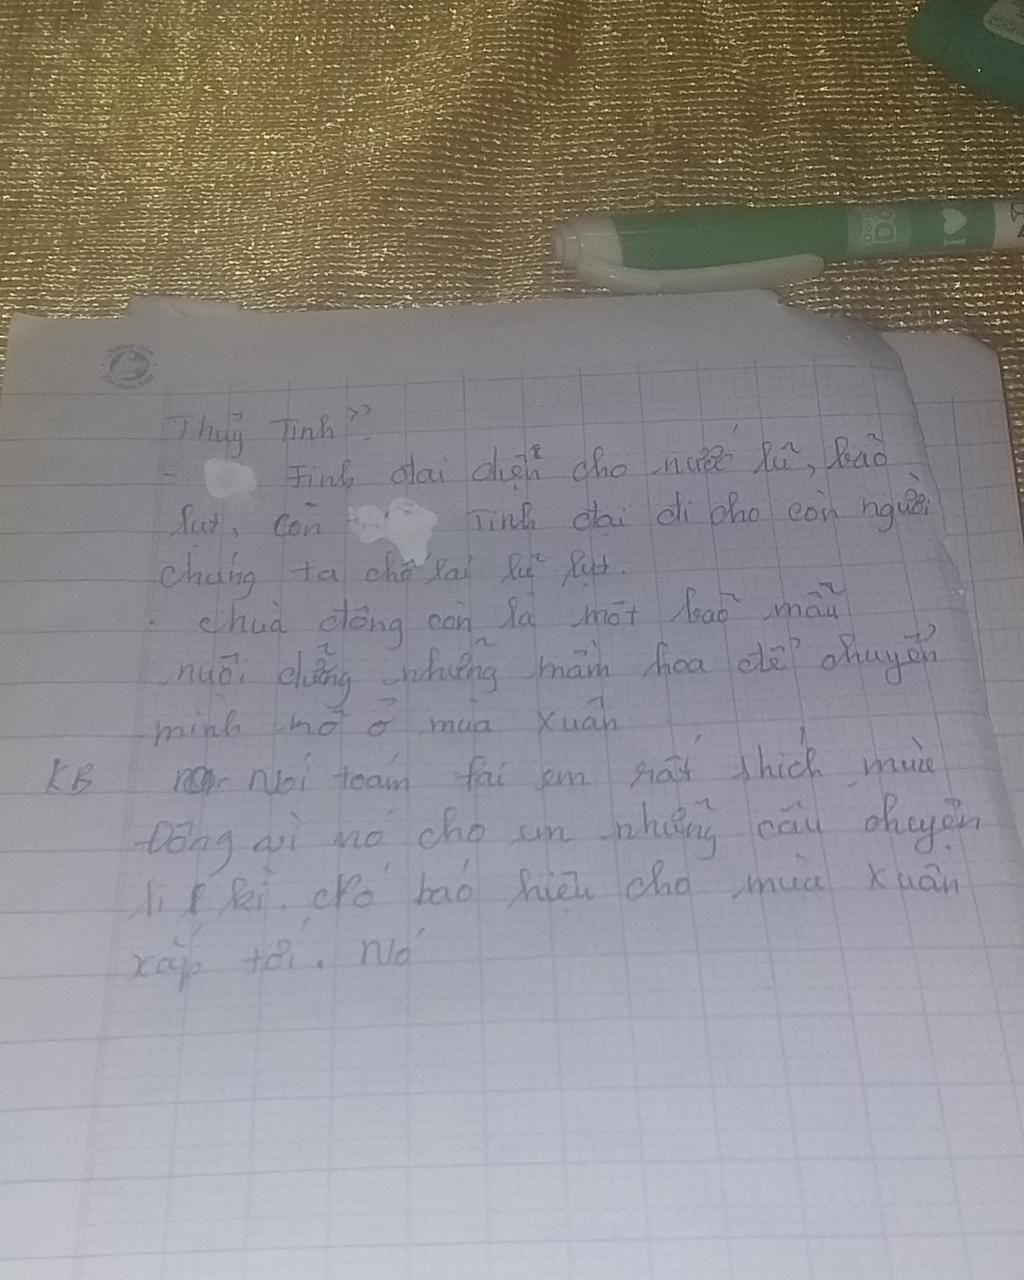 Thuỷ Tinh”.
- Tinh đại diện cho nước lũ, bão
lụt, còn Tinh đại di cho con người
chúng ta chố lại lũ lụt.
- chuà đông còn là một bảo mẫu
nuôi dưỡng những mầm hoa để chuyển
mình nở ở mùa xuân
KB Nói toám lại em rất thích mùa
Đông vì nó cho em những câu chuyện
li kì. báo hiệu cho mùa xuân
xắp tới. Nó